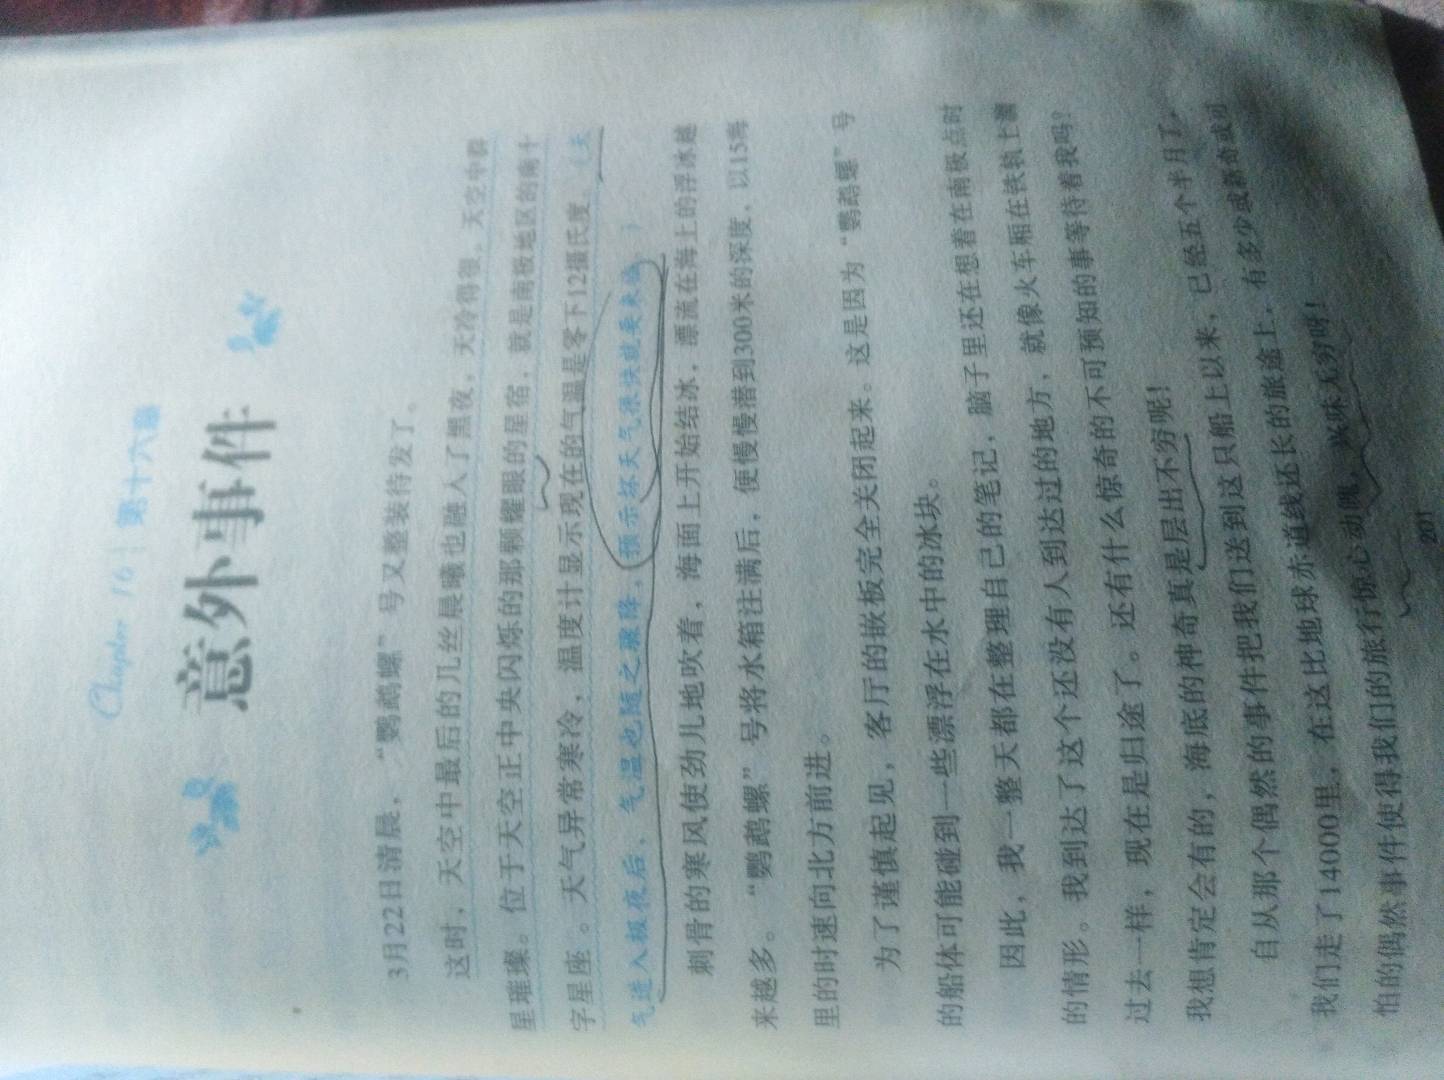 Chapter 16 | 第十六章
意外事件
3月22日清晨，“鹦鹉螺”号又整装待发了。
这时，天空中最后的几丝晨曦也融入了黑夜，天冷得很。天空中群
星璀璨。位于天空正中央闪烁的那颗耀眼的星宿，就是南极地区的南十
字星座。天气异常寒冷，温度计显示现在的气温是零下12摄氏度。（天
气进入极夜后，气温也随之骤降，预示坏天气很快就要来临。）
刺骨的寒风使劲儿地吹着，海面上开始结冰，漂流在海上的浮冰越
来越多。“鹦鹉螺”号将水箱注满后，便慢慢潜到300米的深度，以15海
里的时速向北方前进。
为了谨慎起见，客厅的嵌板完全关闭起来。这是因为“鹦鹉螺”号
的船体可能碰到一些漂浮在水中的冰块。
因此，我一整天都在整理自己的笔记，脑子里还在想着在南极点时
的情形。我到达了这个还没有人到达过的地方，就像火车厢在铁轨上溜
过去一样，现在是归途了。还有什么惊奇的不可预知的事等待着我吗？
我想肯定会有的，海底的神奇真是层出不穷呢！
自从那个偶然的事件把我们送到这只船上以来，已经五个半月了。
我们走了14000里，在这比地球赤道线还长的旅途上，有多少或新奇或可
怕的偶然事件使得我们的旅行惊心动魄、兴味无穷呀！
201